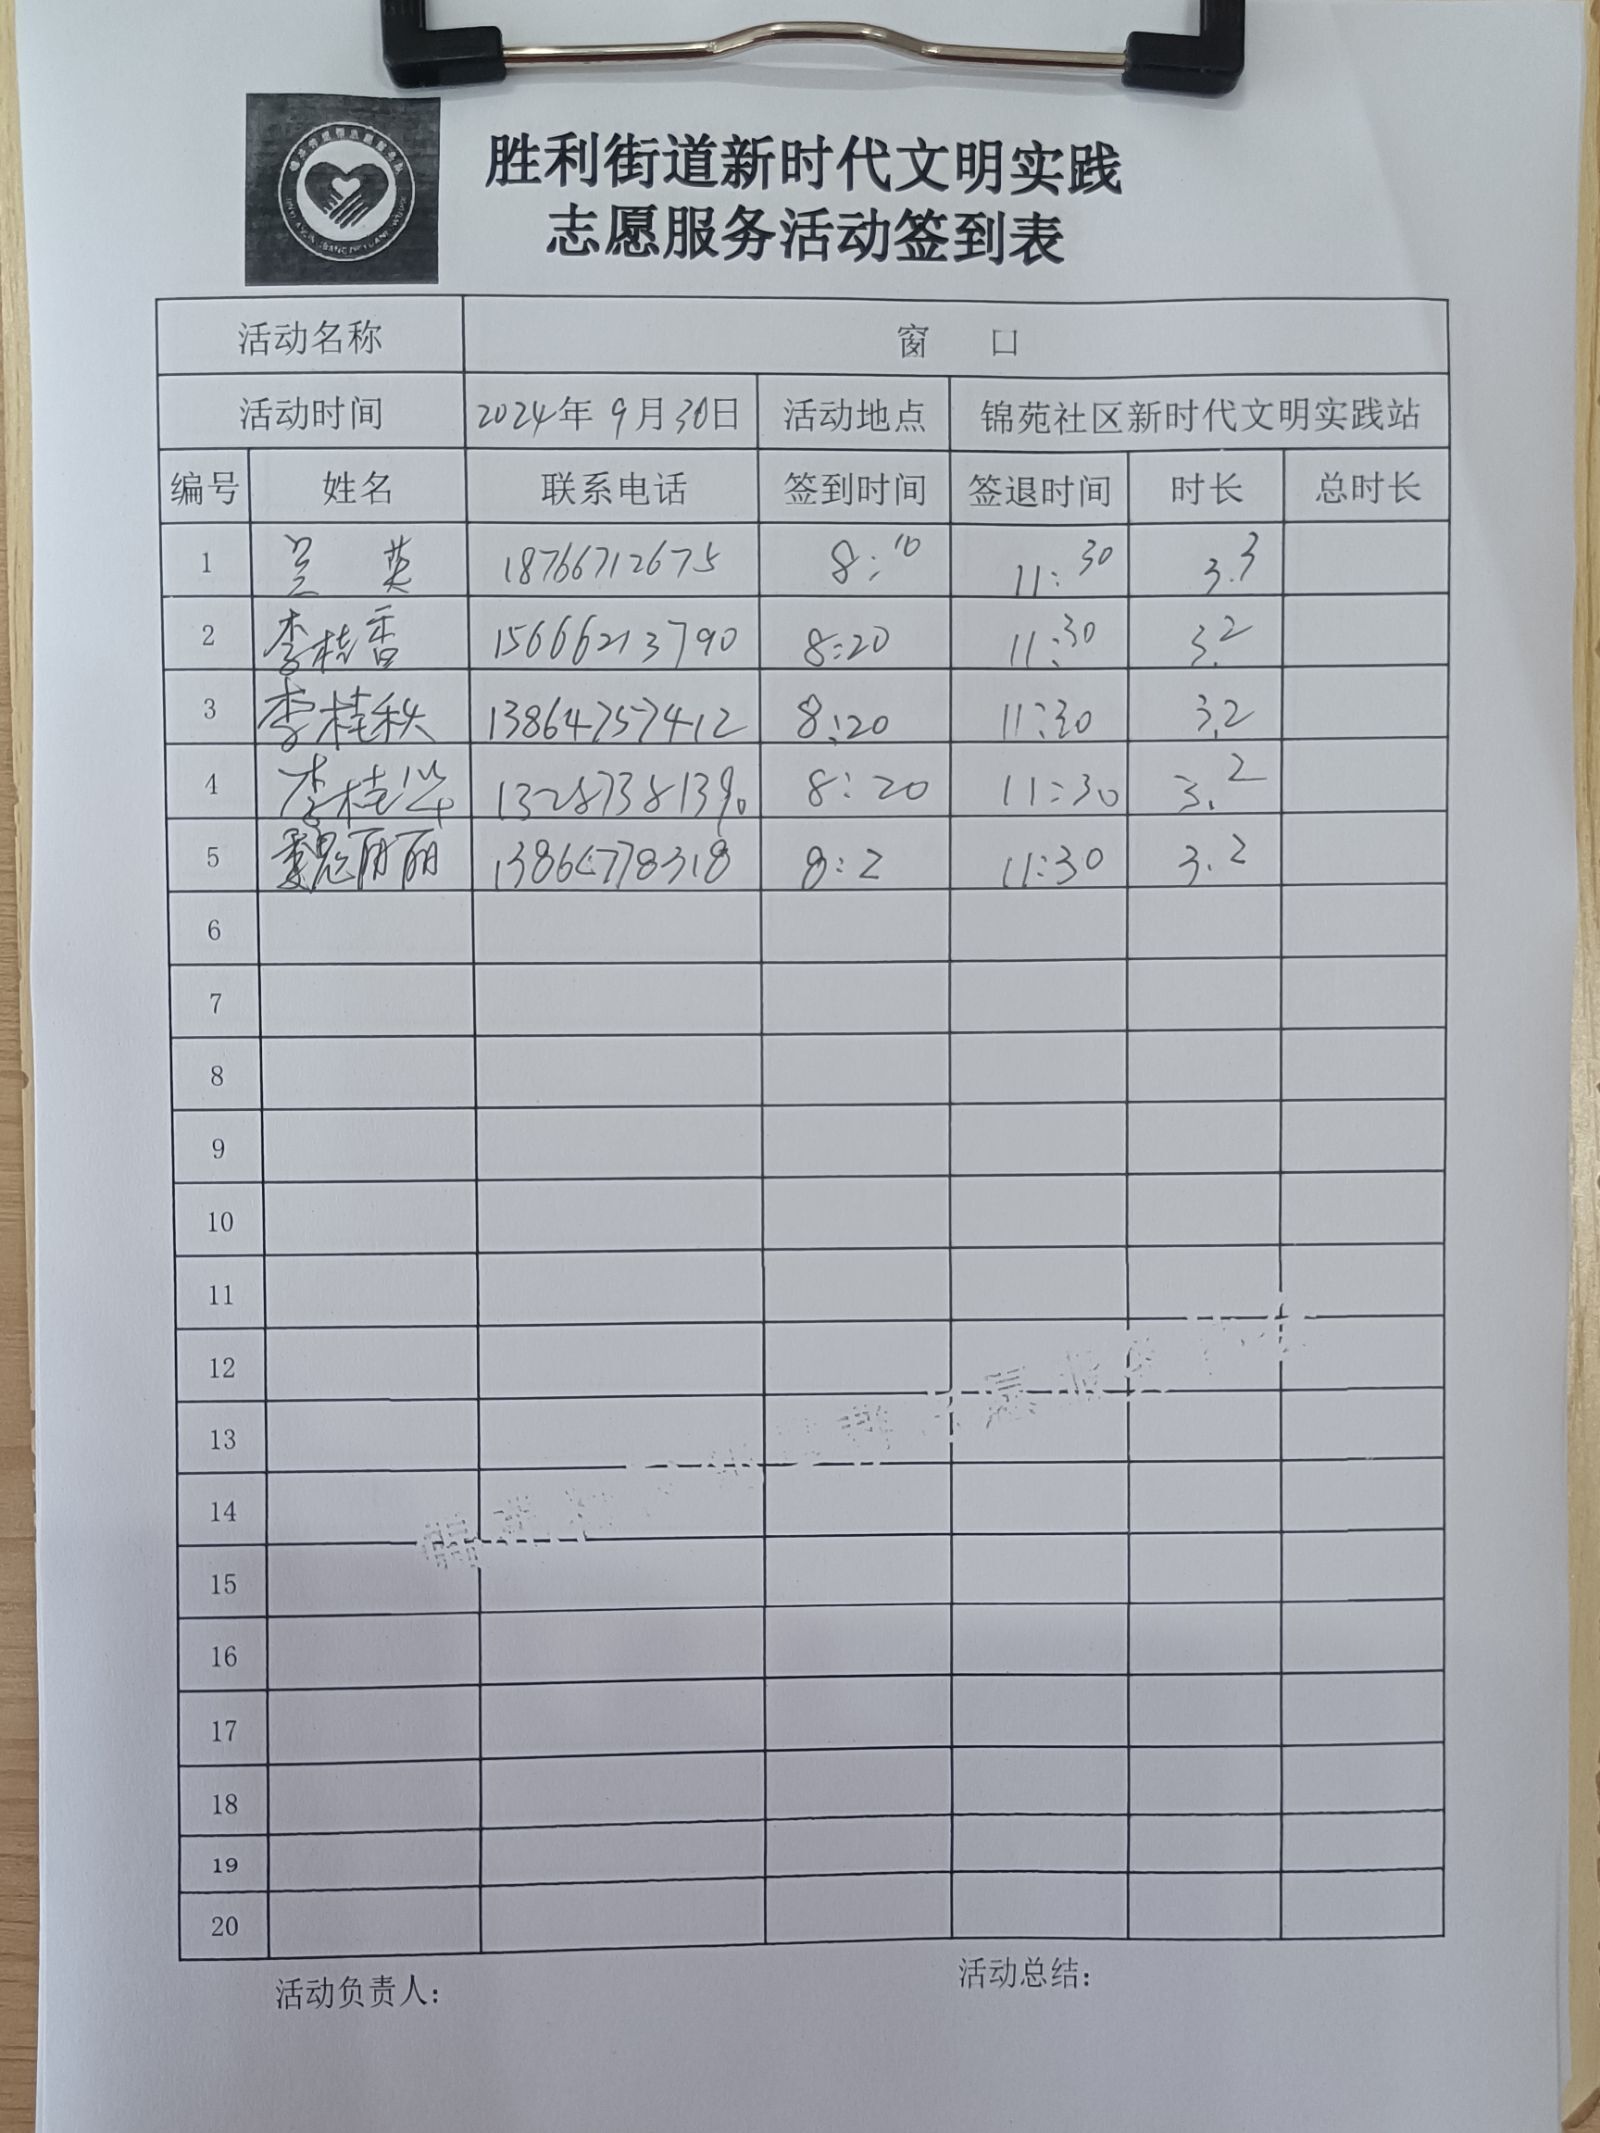 胜利街道新时代文明实践
志愿服务活动签到表
活动名称 窗 口
活动时间 2024年 9月30日 活动地点 锦苑社区新时代文明实践站
编号 姓名 联系电话 签到时间 签退时间 时长 总时长
1 英 18766712675 8:10 11:30 3.3
2 李桂香 15666213790 8:20 11:30 3.2
3 李桂秋 13864757412 8:20 11:30 3.2
4 李桂华 13287381390 8:20 11:30 3.2
5 魏丽丽 13864778318 8:2 11:30 3.2
6
7
8
9
10
11
12
13
14
15
16
17
18
19
20
活动负责人： 活动总结：